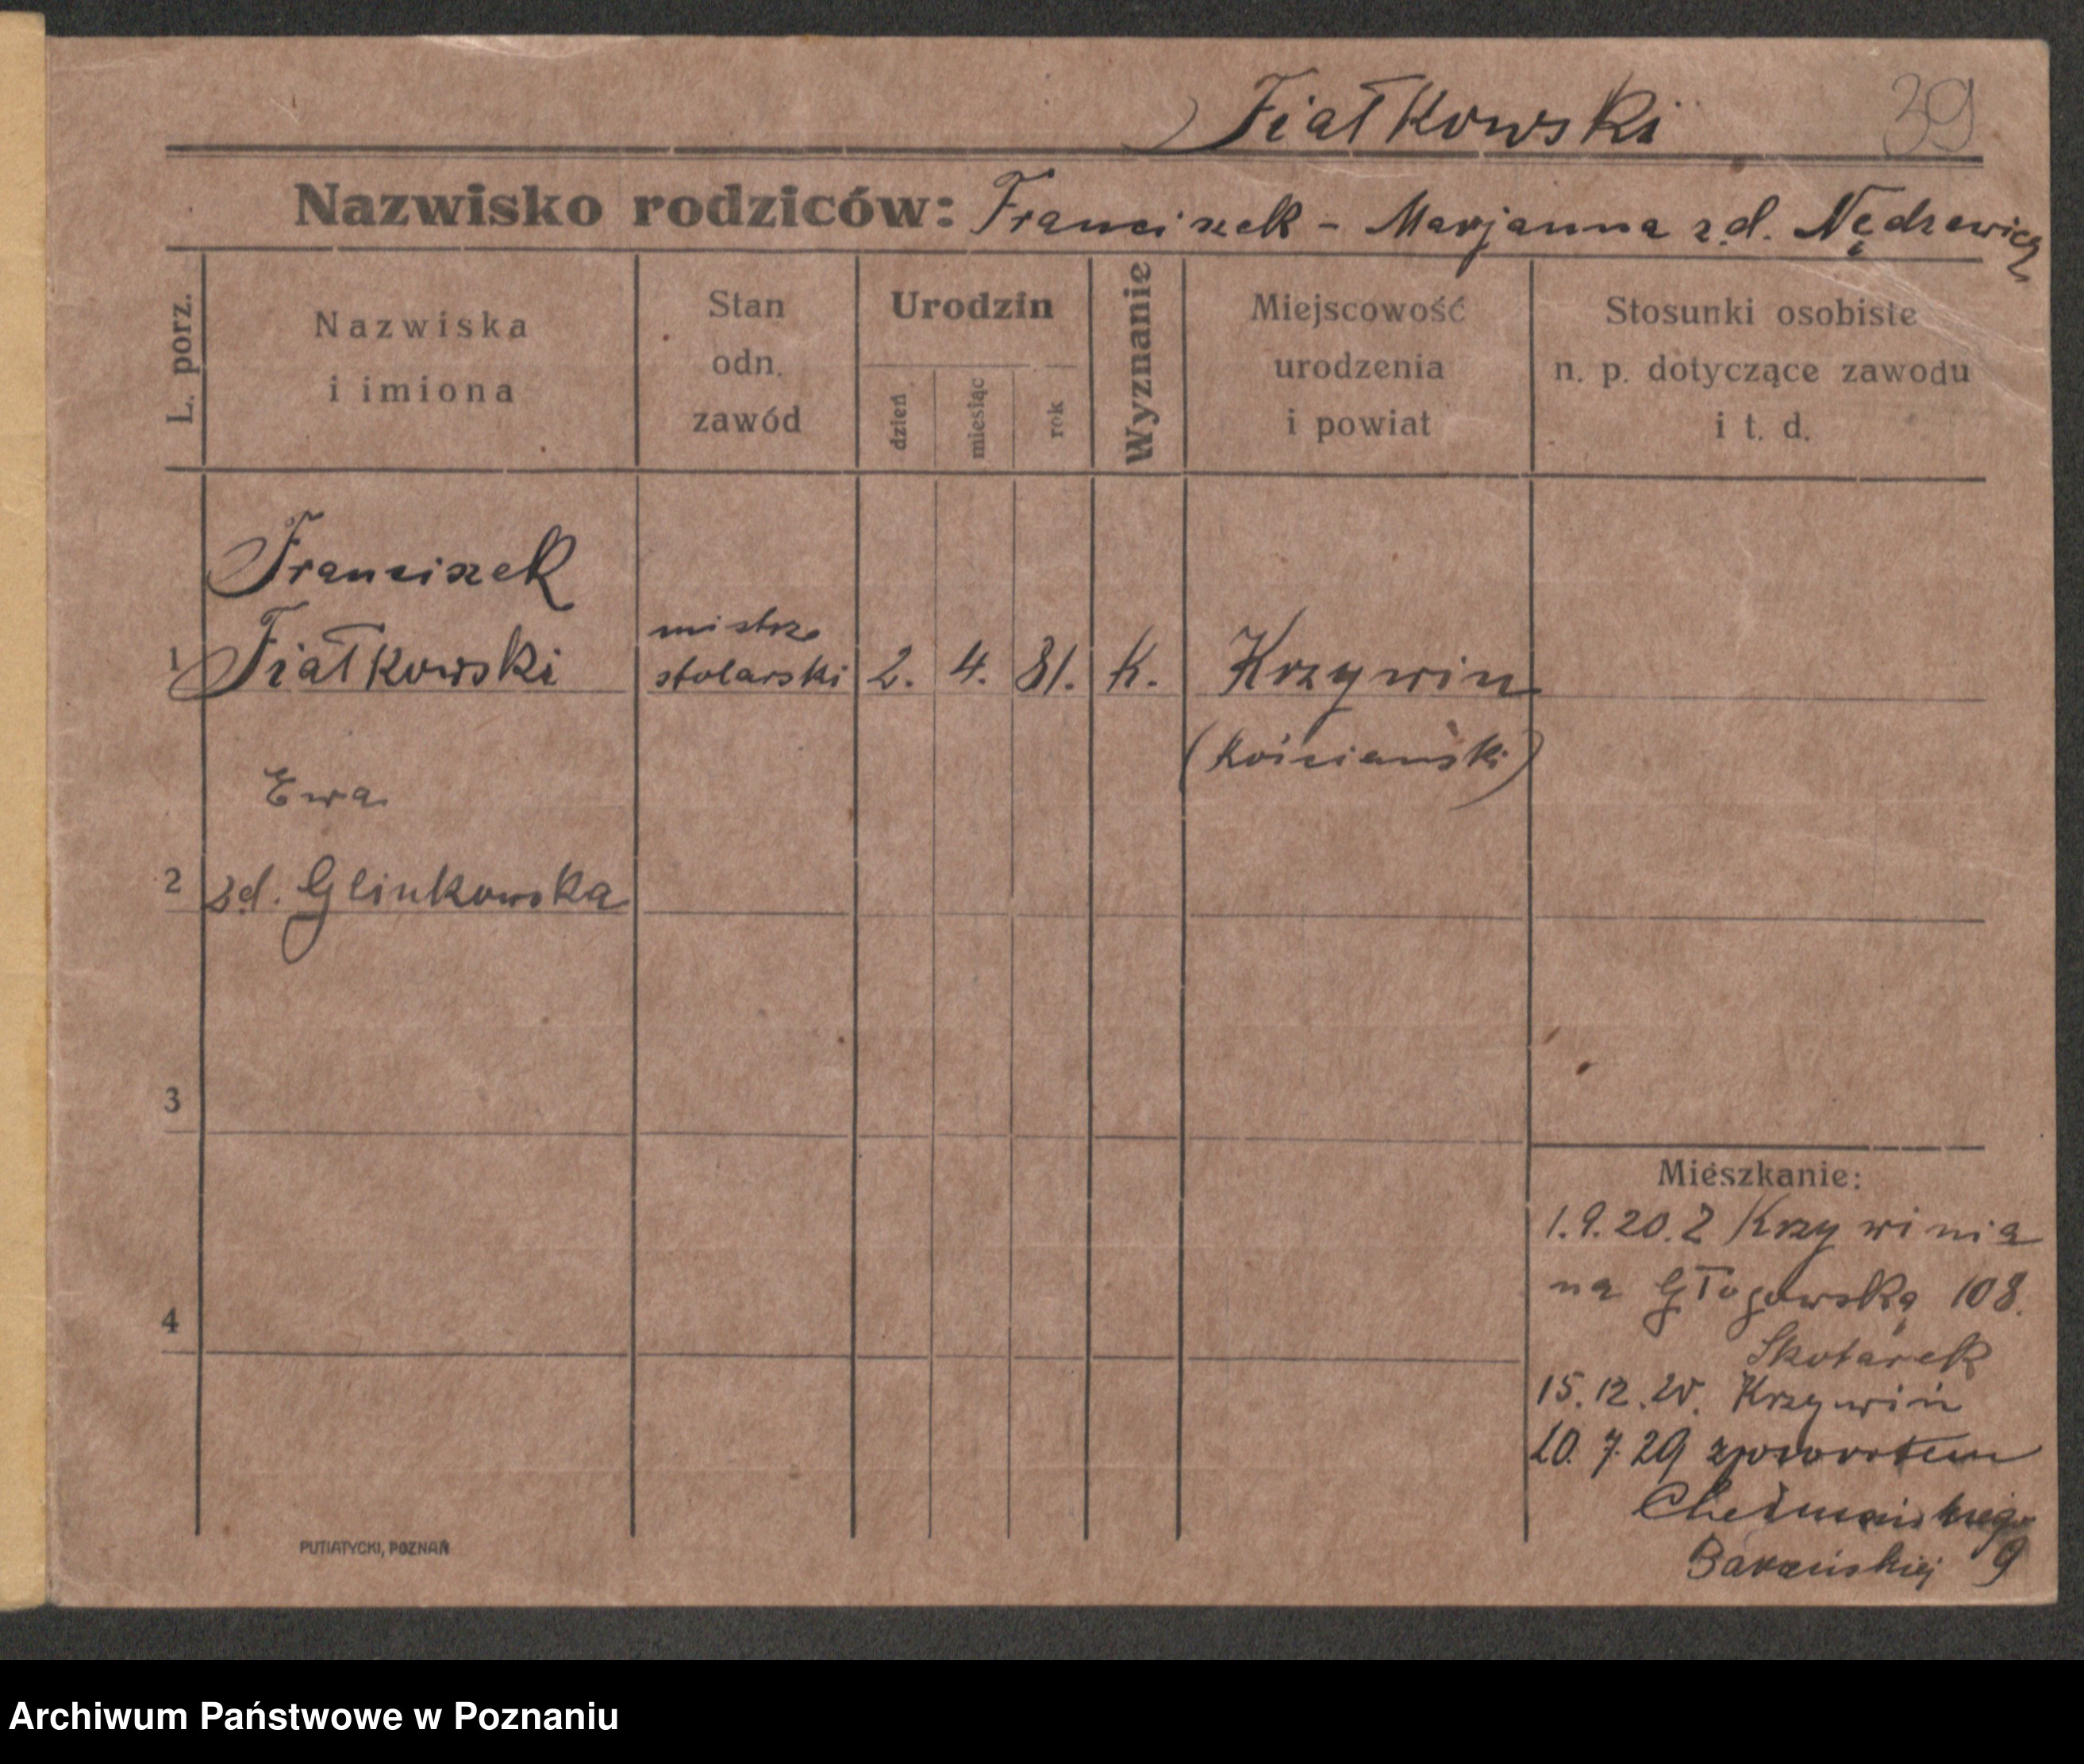 Fiałkowski 39
Nazwisko rodziców: Franciszek - Marjanna z.d. Nędzewicz
L. porz.
Nazwiska
i imiona
Stan
odn.
zawód
Urodzin
dzień
miesiąc
rok
Wyznanie
Miejscowość
urodzenia
i powiat
Stosunki osobiste
n. p. dotyczące zawodu
i t. d.
Franciszek
1 Fiałkowski
mistrz
stolarski
2. 4. 81. K.
Krzywin
(Kościański)
Ewa
2 z.d. Glinkowska
3
4
Mieszkanie:
1.9.20. Z Krzywinia
na Głogowską 108.
Skotarek
15.12.20. Krzywiń
10.7.29 zpowrotem
9
PUTIATYCKI, POZNAŃ
Archiwum Państwowe w Poznaniu